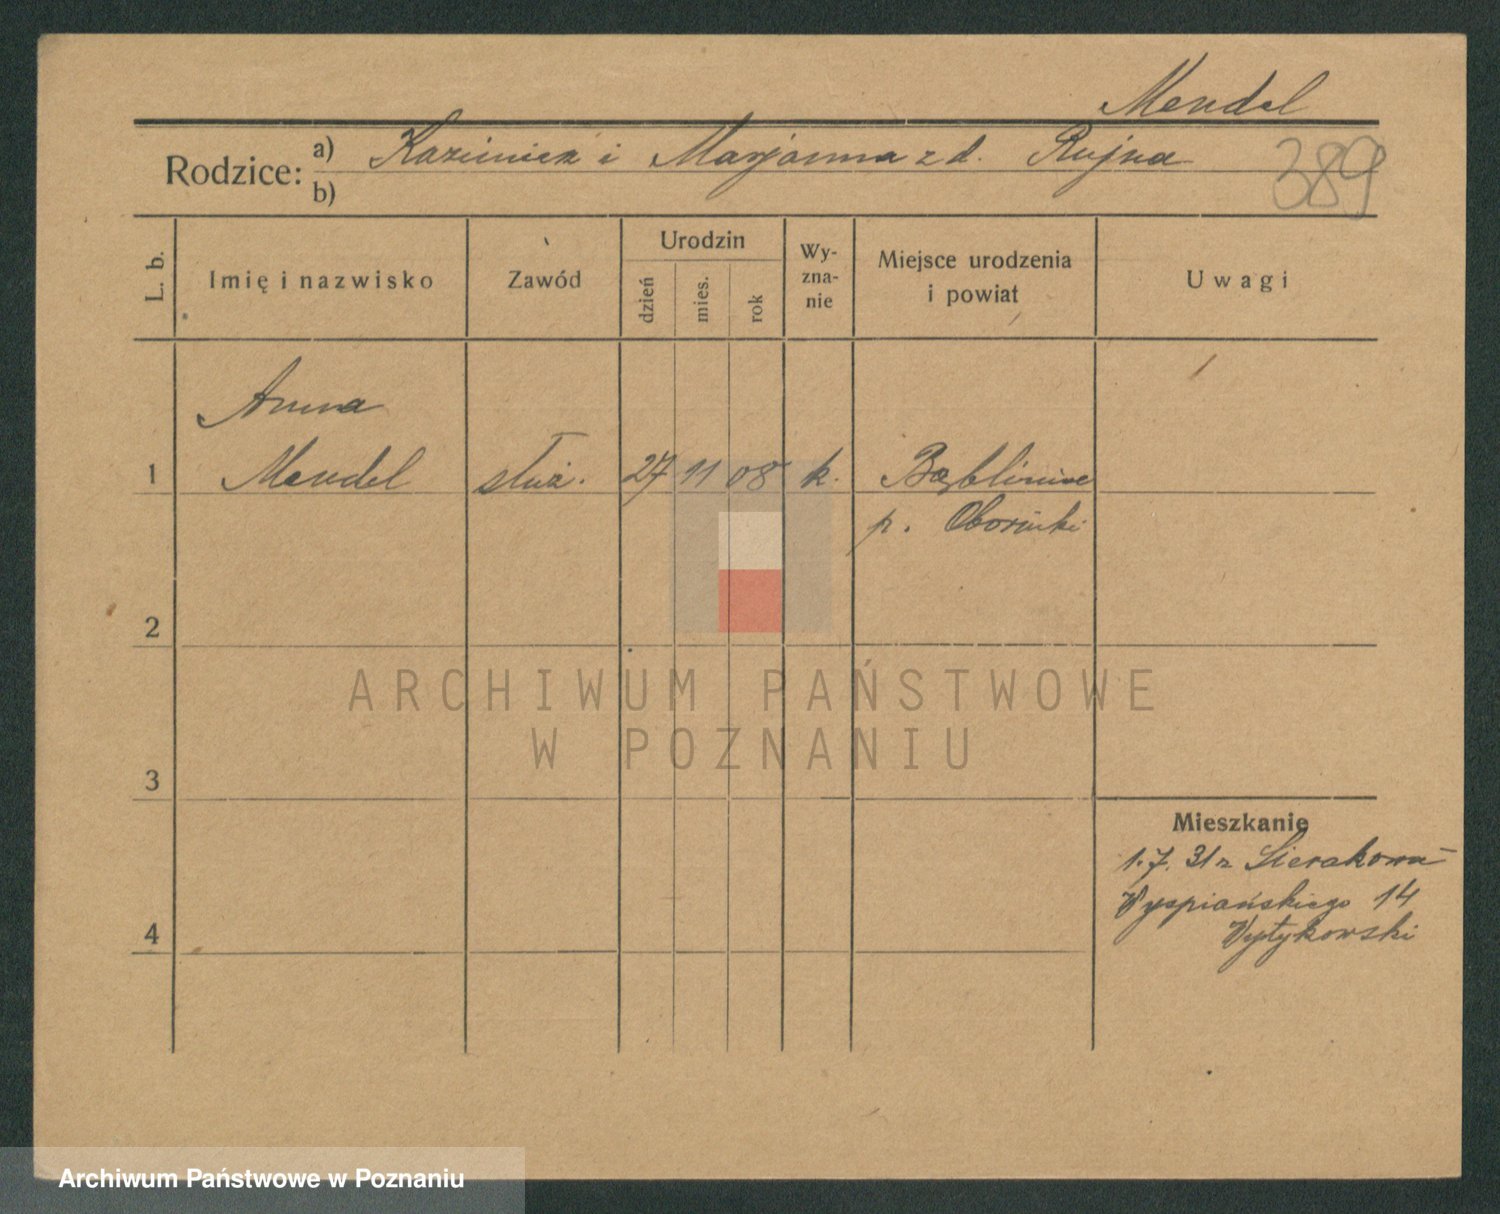 Mendel
Rodzice: a) Kazimierz i Marjanna z d. Rujna
b)
389
L. b.
Imię i nazwisko
Zawód
Urodzin
dzień
mies.
rok
Wy-
zna-
nie
Miejsce urodzenia
i powiat
Uwagi
Anna
1 Mendel służ. 27 11 08 k. Bąblinie
p. Obornicki
2
3
4
Mieszkanie
1.7.31 z Sierakowa
Wyspiańskiego 14
ARCHIWUM PAŃSTWOWE
W POZNANIU
Archiwum Państwowe w Poznaniu